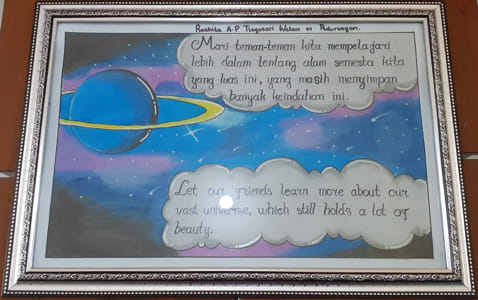 Rashita A.P Tlogosari Wetan 01 Pedurungan.
Mari teman-teman kita mempelajari
lebih dalam tentang alam semesta kita
yang luas ini, yang masih menyimpan
banyak keindahan ini.
Let our friends learn more about our
vast universe, which still holds a lot of
beauty.